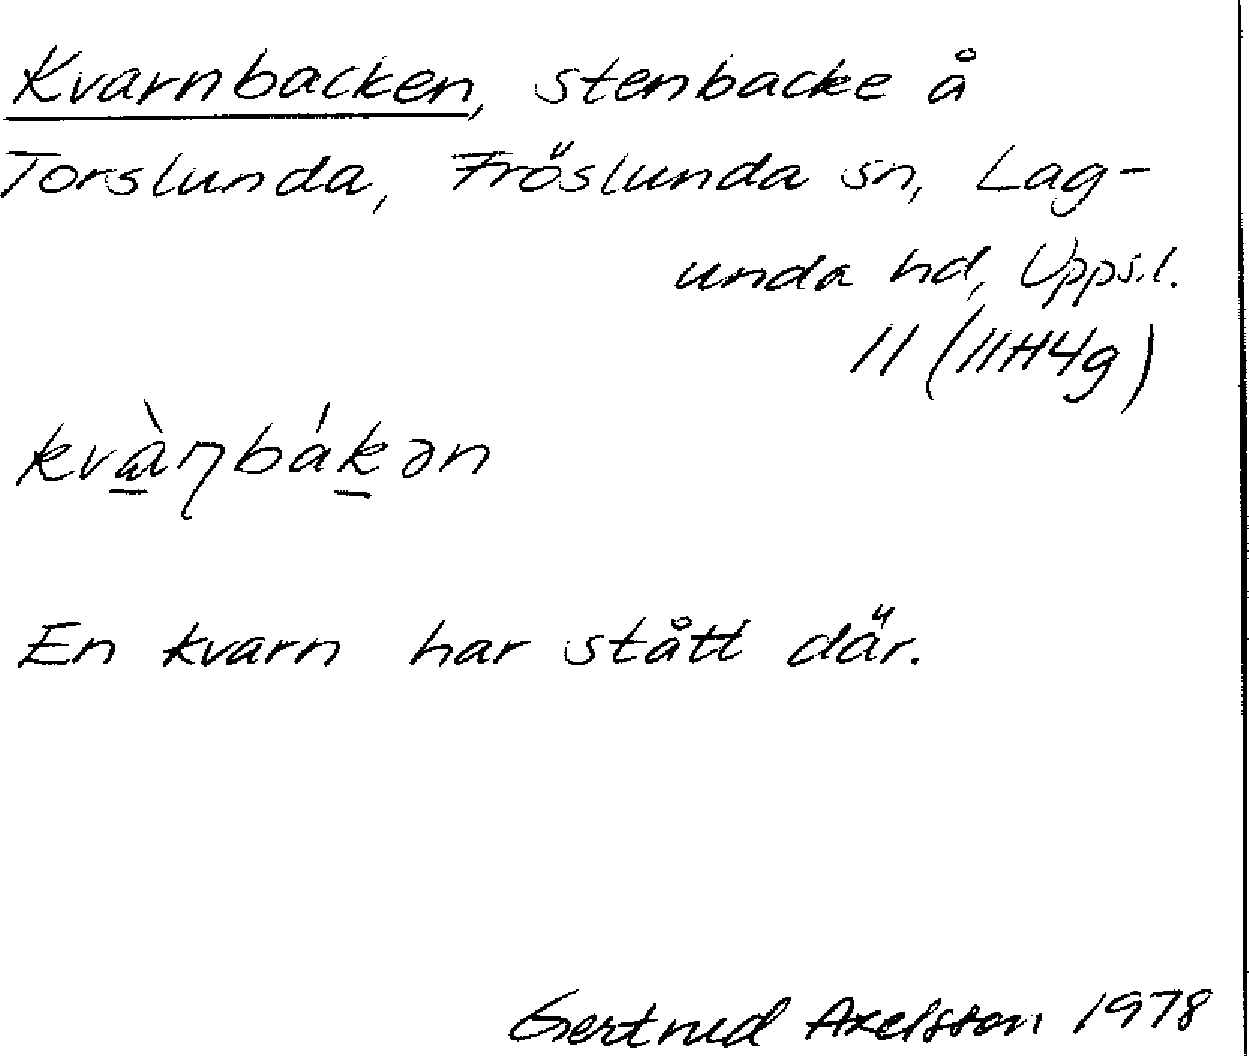 Kvarnbacken, stenbacke å
Torslunda, Fröslunda sn, Lag-
unda hd, Upps.l.
11 (11H4g)
kvàηbákən
En kvarn har stått där.
Gertrud Axelsson 1978